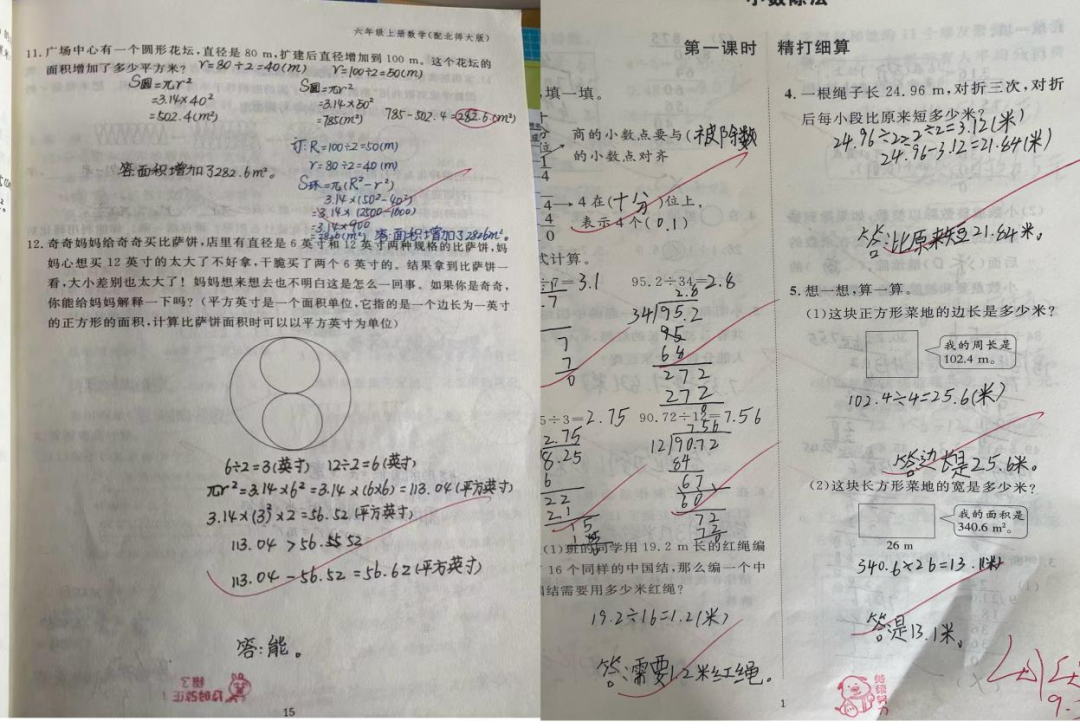 六年级上册数学(配北师大版)
11. 广场中心有一个圆形花坛,直径是 80 m,扩建后直径增加到 100 m。这个花坛的
面积增加了多少平方米? r=80÷2=40(m) r=100÷2=50(m)
S圆=πr²
=3.14×40²
=502.4(m²)
S圆=πr²
=3.14×50²
=785(m²) 785-502.4=282.6(m²)
答:面积增加了282.6m²。
订:R=100÷2=50(m)
r=80÷2=40(m)
S环=π(R²-r²)
3.14×(50²-40²)
=3.14×(2500-1600)
=3.14×900
=2826(m²) 答:面积增加了2826m²。
12. 奇奇妈妈给奇奇买比萨饼,店里有直径是 6 英寸和 12 英寸两种规格的比萨饼,妈
妈心想买 12 英寸的太大了不好拿,干脆买了两个 6 英寸的。结果拿到比萨饼一
看,大小差别也太大了!妈妈想来想去也不明白这是怎么一回事。如果你是奇奇,
你能给妈妈解释一下吗?(平方英寸是一个面积单位,它指的是一个边长为一英寸
的正方形的面积,计算比萨饼面积时可以以平方英寸为单位)
6÷2=3(英寸) 12÷2=6(英寸)
πr²=3.14×6²=3.14×(6×6)=113.04(平方英寸)
3.14×(3)²×2=56.52(平方英寸)
113.04>56.52
113.04-56.52=56.52(平方英寸)
答:能。
15
小数除法
第一课时 精打细算
填一填。
商的小数点要与(被除数)
的小数点对齐
4在(十分)位上,
表示4个(0.1)
式计算。
=3.1 95.2÷34=2.8
2.8
34 95.2
68
272
272
5÷3=2.75 90.72÷12=7.56
2.75
8.25
6
22
21
15
7.56
12 90.72
84
67
60
72
72
(1)班的同学用 19.2 m 长的红绳编
16 个同样的中国结,那么编一个中
国结需要用多少米红绳?
19.2÷16=1.2(米)
答:需要1.2米红绳。
4. 一根绳子长 24.96 m,对折三次,对折
后每小段比原来短多少米?
24.96÷2÷2÷2=3.12(米)
24.96-3.12=21.84(米)
答:比原来短21.84米。
5. 想一想,算一算。
(1)这块正方形菜地的边长是多少米?
我的周长是
102.4 m。
102.4÷4=25.6(米)
答:边长是25.6米。
(2)这块长方形菜地的宽是多少米?
我的面积是
340.6 m²。
26 m
340.6÷26=13.1(米)
答:是13.1米。
1